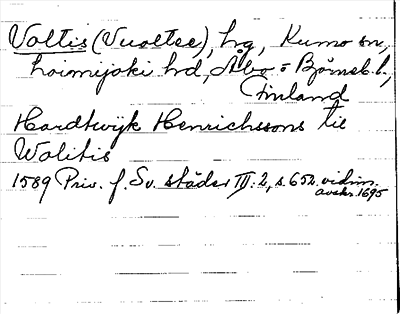 Voltis (Vuoltee), hg, Kumo sn,
Loimijoki hd, Åbo = Björneb. l.,
Finland
Hardtwijk Henrichssons till
Wolitis
1589 Priv. f. Sv. städer III: 2, s. 652. vidim.
avskr. 1695